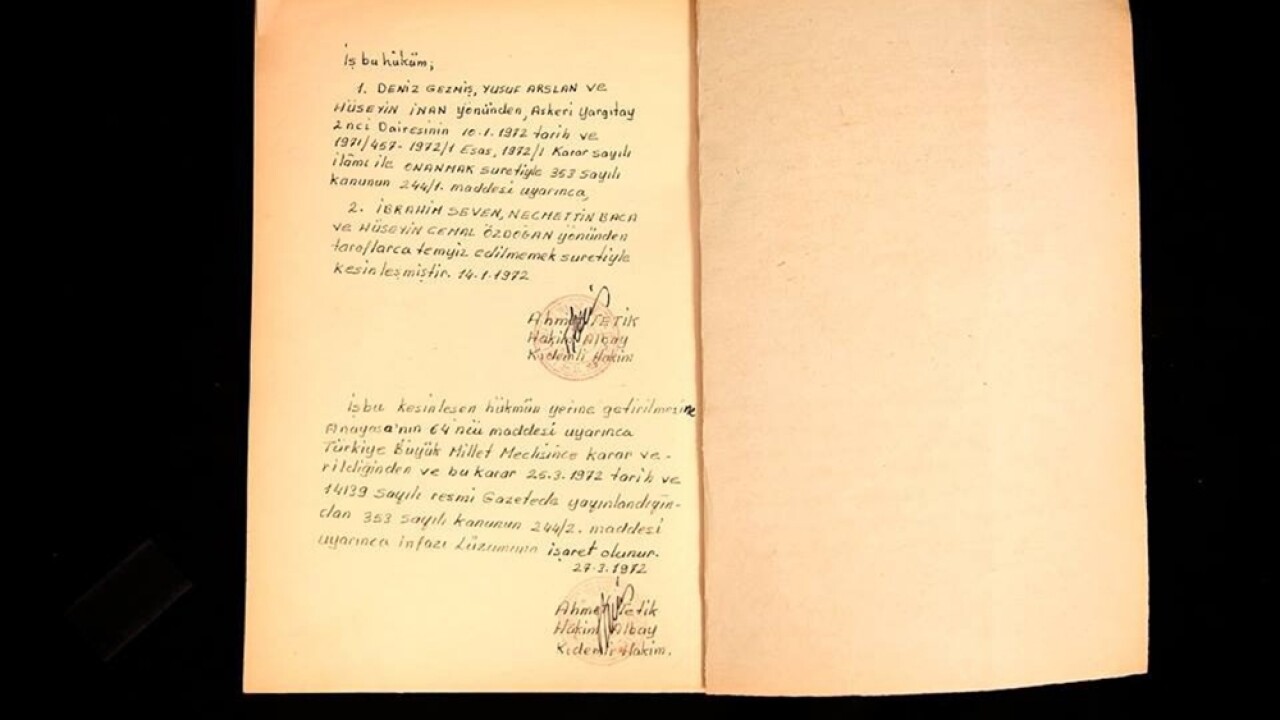 İş bu hüküm;
1. DENİZ GEZMİŞ, YUSUF ARSLAN ve
HÜSEYİN İNAN yönünden, Askeri Yargıtay
2nci Dairesinin 10.1.1972 tarih ve
1971/457- 1972/1 Esas, 1972/1 Karar sayılı
ilâmı ile ONANMAK suretiyle 353 sayılı
kanunun 244/1. maddesi uyarınca,
2. İBRAHİM SEVEN, NECMETTİN BACA
ve HÜSEYİN CEMAL ÖZDOĞAN yönünden
taraflarca temyiz edilmemek suretiyle
kesinleşmiştir. 14.1.1972
Hakim Albay
Kıdemli Hakim
İşbu kesinleşen hükmün yerine getirilmesine
Anayasa'nın 64'ncü maddesi uyarınca
Türkiye Büyük Millet Meclisince karar ve-
rildiğinden ve bu karar 25.3.1972 tarih ve
14139 sayılı resmi Gazetede yayınlandığın-
dan 353 sayılı kanunun 244/2. maddesi
uyarınca infazı Lüzumuna işaret olunur.
27.3.1972
Hakim Albay
Kıdemli Hakim.